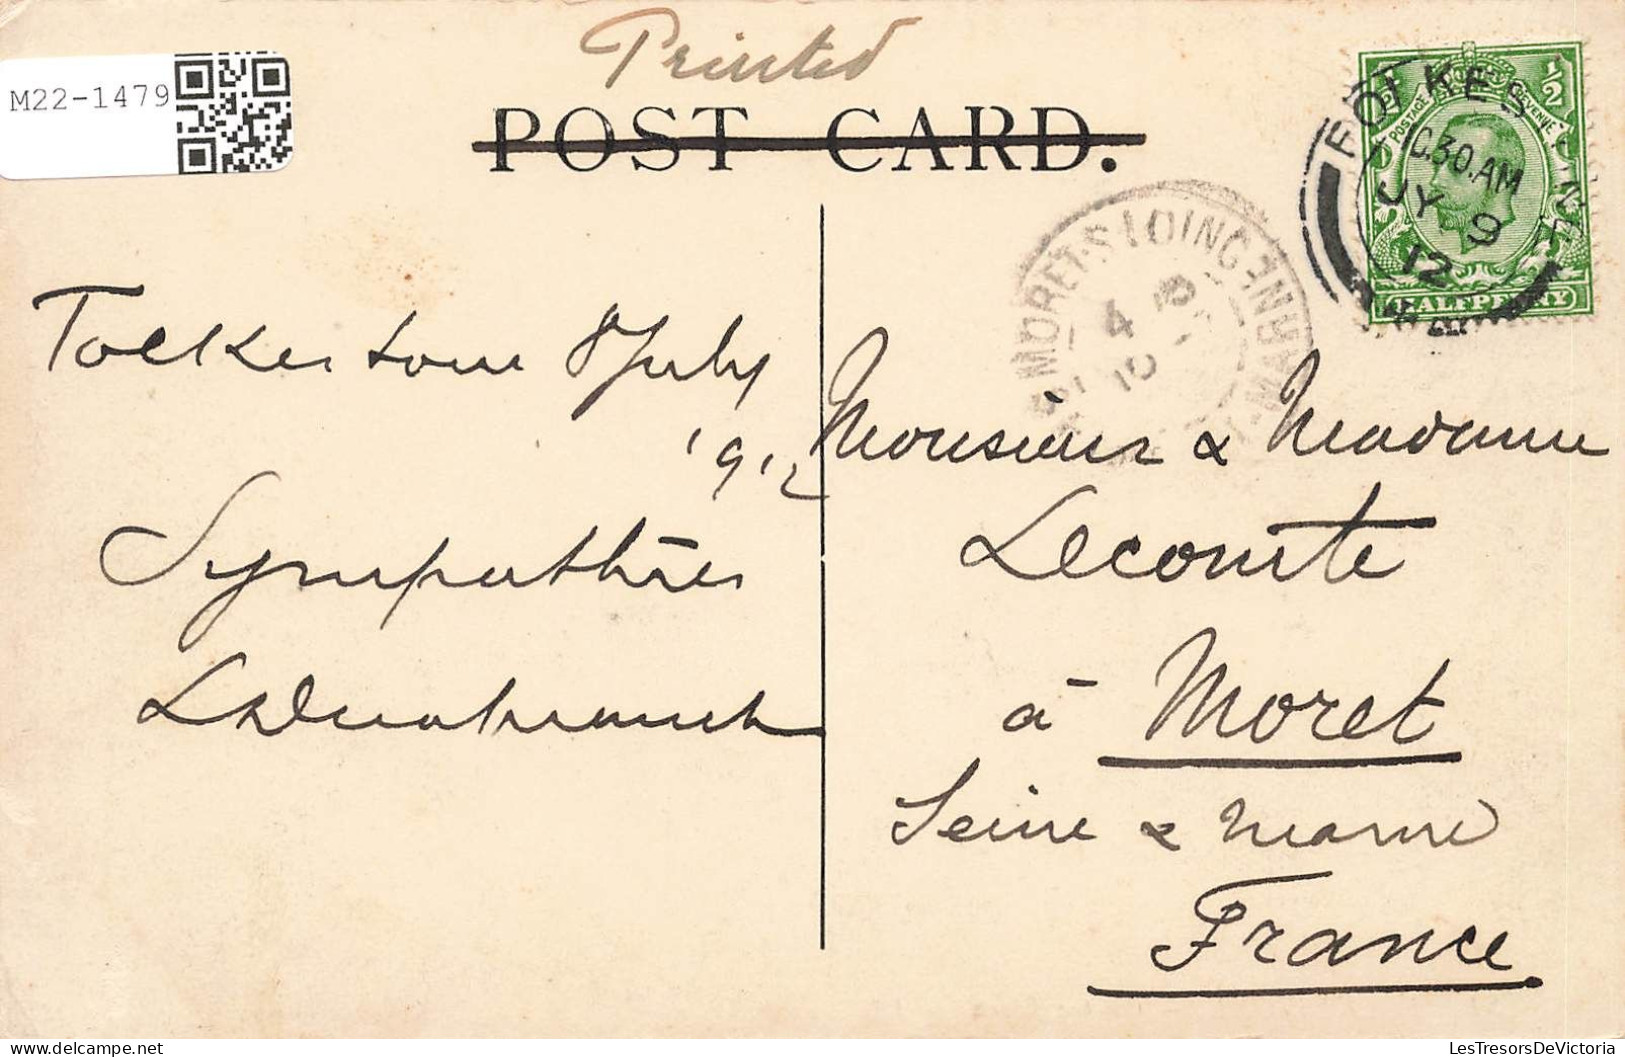 M22-1479
Printed
POST CARD.
POSTAGE REVENUE
½
HALFPENNY
FOLKESTONE
10.30.AM
JY 9
12
MORET-S-LOING
4
10
Folkestone 8 July
1912
Sympathies
Monsieur & Madame
Lecomte
à Moret
Seine & Marne
France
LesTresorsDeVictoria